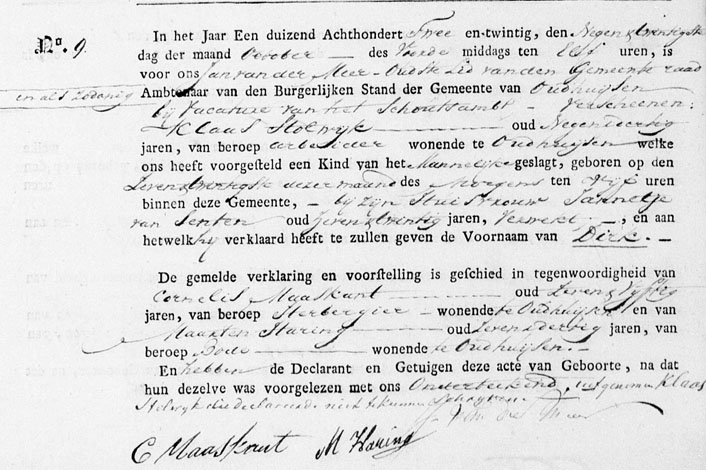 No. 9.
In het Jaar Een duizend Achthondert Twee en-twintig, den Negen & twintigste
dag der maand October — des Voorde middags ten Elf uren, is
voor ons Jan van der Meer Oudste Lid van den Gemeente raad
en als zodanig
Ambtenaar van den Burgerlijken Stand der Gemeente van Oudhuijsen
bij vacature van het Schoutsambt — Verscheenen:
Klaas Stolwijk — oud Negen & dertig
jaren, van beroep arbeider wonende te Oudhuijsen welke
ons heeft voorgesteld een Kind van het Mannelijke geslagt, geboren op den
Zeven & twintigste dezer maand des Morgens ten vijf uren
binnen deze Gemeente, — bij zijn Huisvrouw Jannetje
van Senten oud Zeven & twintig jaren, Verwekt —, en aan
hetwelk hij verklaard heeft te zullen geven de Voornaam van Dirk. —
De gemelde verklaring en voorstelling is geschied in tegenwoordigheid van
Cornelis Maaskant — oud Zeven & Vijftig
jaren, van beroep Herbergier — wonende te Oudhuijsen en van
Maarten Haring — oud Zeven & dertig jaren, van
beroep Bode — wonende te Oudhuijsen. —
En hebben de Declarant en Getuigen deze acte van Geboorte, na dat
hun dezelve was voorgelezen met ons Onderteekend, uitgenomen Klaas
Stolwijk die declareerde niet te kunnen Schrijven.
J. van der Meer
C Maaskant M Haring